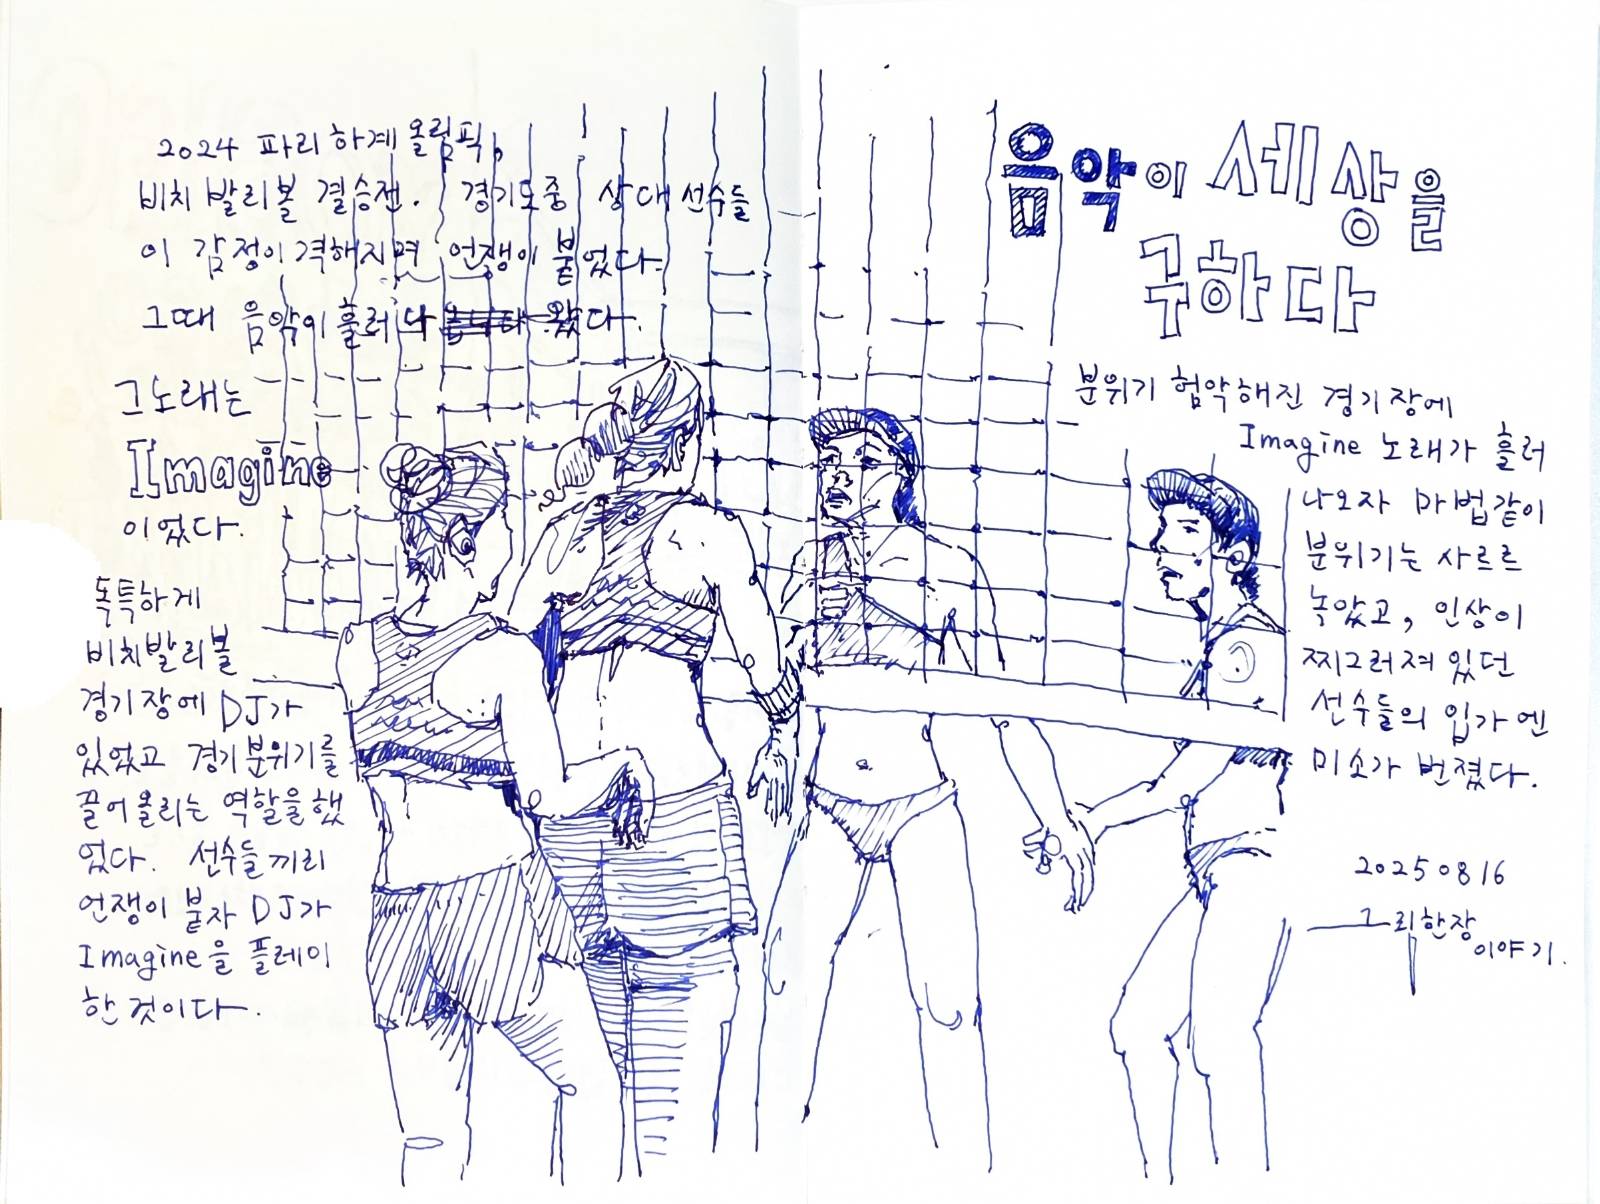 2024 파리하계올림픽,
비치발리볼 결승전. 경기도중 상대선수들
이 감정이 격해지며 언쟁이 붙었다.
그때 음악이 흘러나왔다.
그노래는
Imagine
이었다.
독특하게
비치발리볼
경기장에 DJ가
있었고 경기분위기를
끌어올리는 역할을했
었다. 선수들끼리
언쟁이 붙자 DJ가
Imagine을 플레이
한것이다.
음악이 세상을
구하다
분위기 험악해진 경기장에
Imagine 노래가 흘러
나오자 마법같이
분위기는 사르르
녹았고, 인상이
찌그러져 있던
선수들의 입가엔
미소가 번졌다.
20250816
그리한장
이야기.